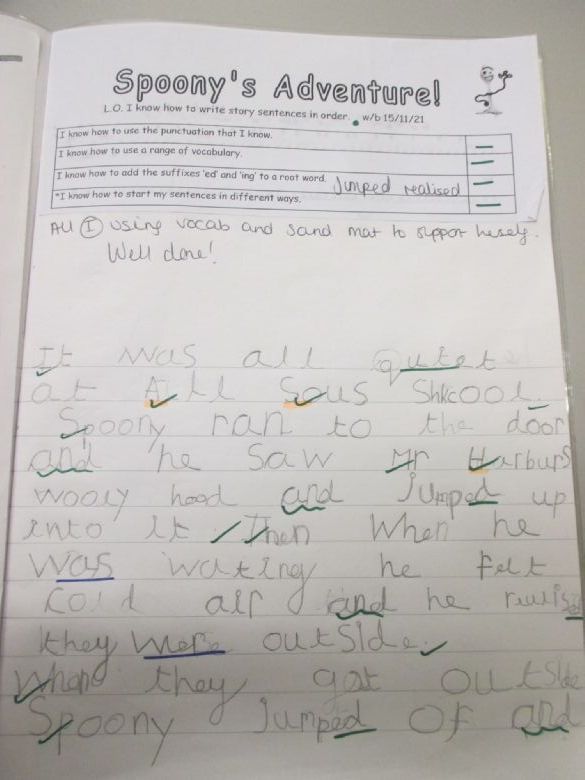 Spoony's Adventure!
L.O. I know how to write story sentences in order. w/b 15/11/21
I know how to use the punctuation that I know.
I know how to use a range of vocabulary.
I know how to add the suffixes 'ed' and 'ing' to a root word. jumped realised
*I know how to start my sentences in different ways.
All I using vocab and sand mat to suppor hesely.
Well done!
It was all qutet
at All Sous Shkcool.
Spoony ran to the door
and he saw Mr Harburs
wooly hood and Jumped up
into it Then When he
was wateing he felt
cold air and he realise
they were outside.
When they got outside
Spoony Jumped of and